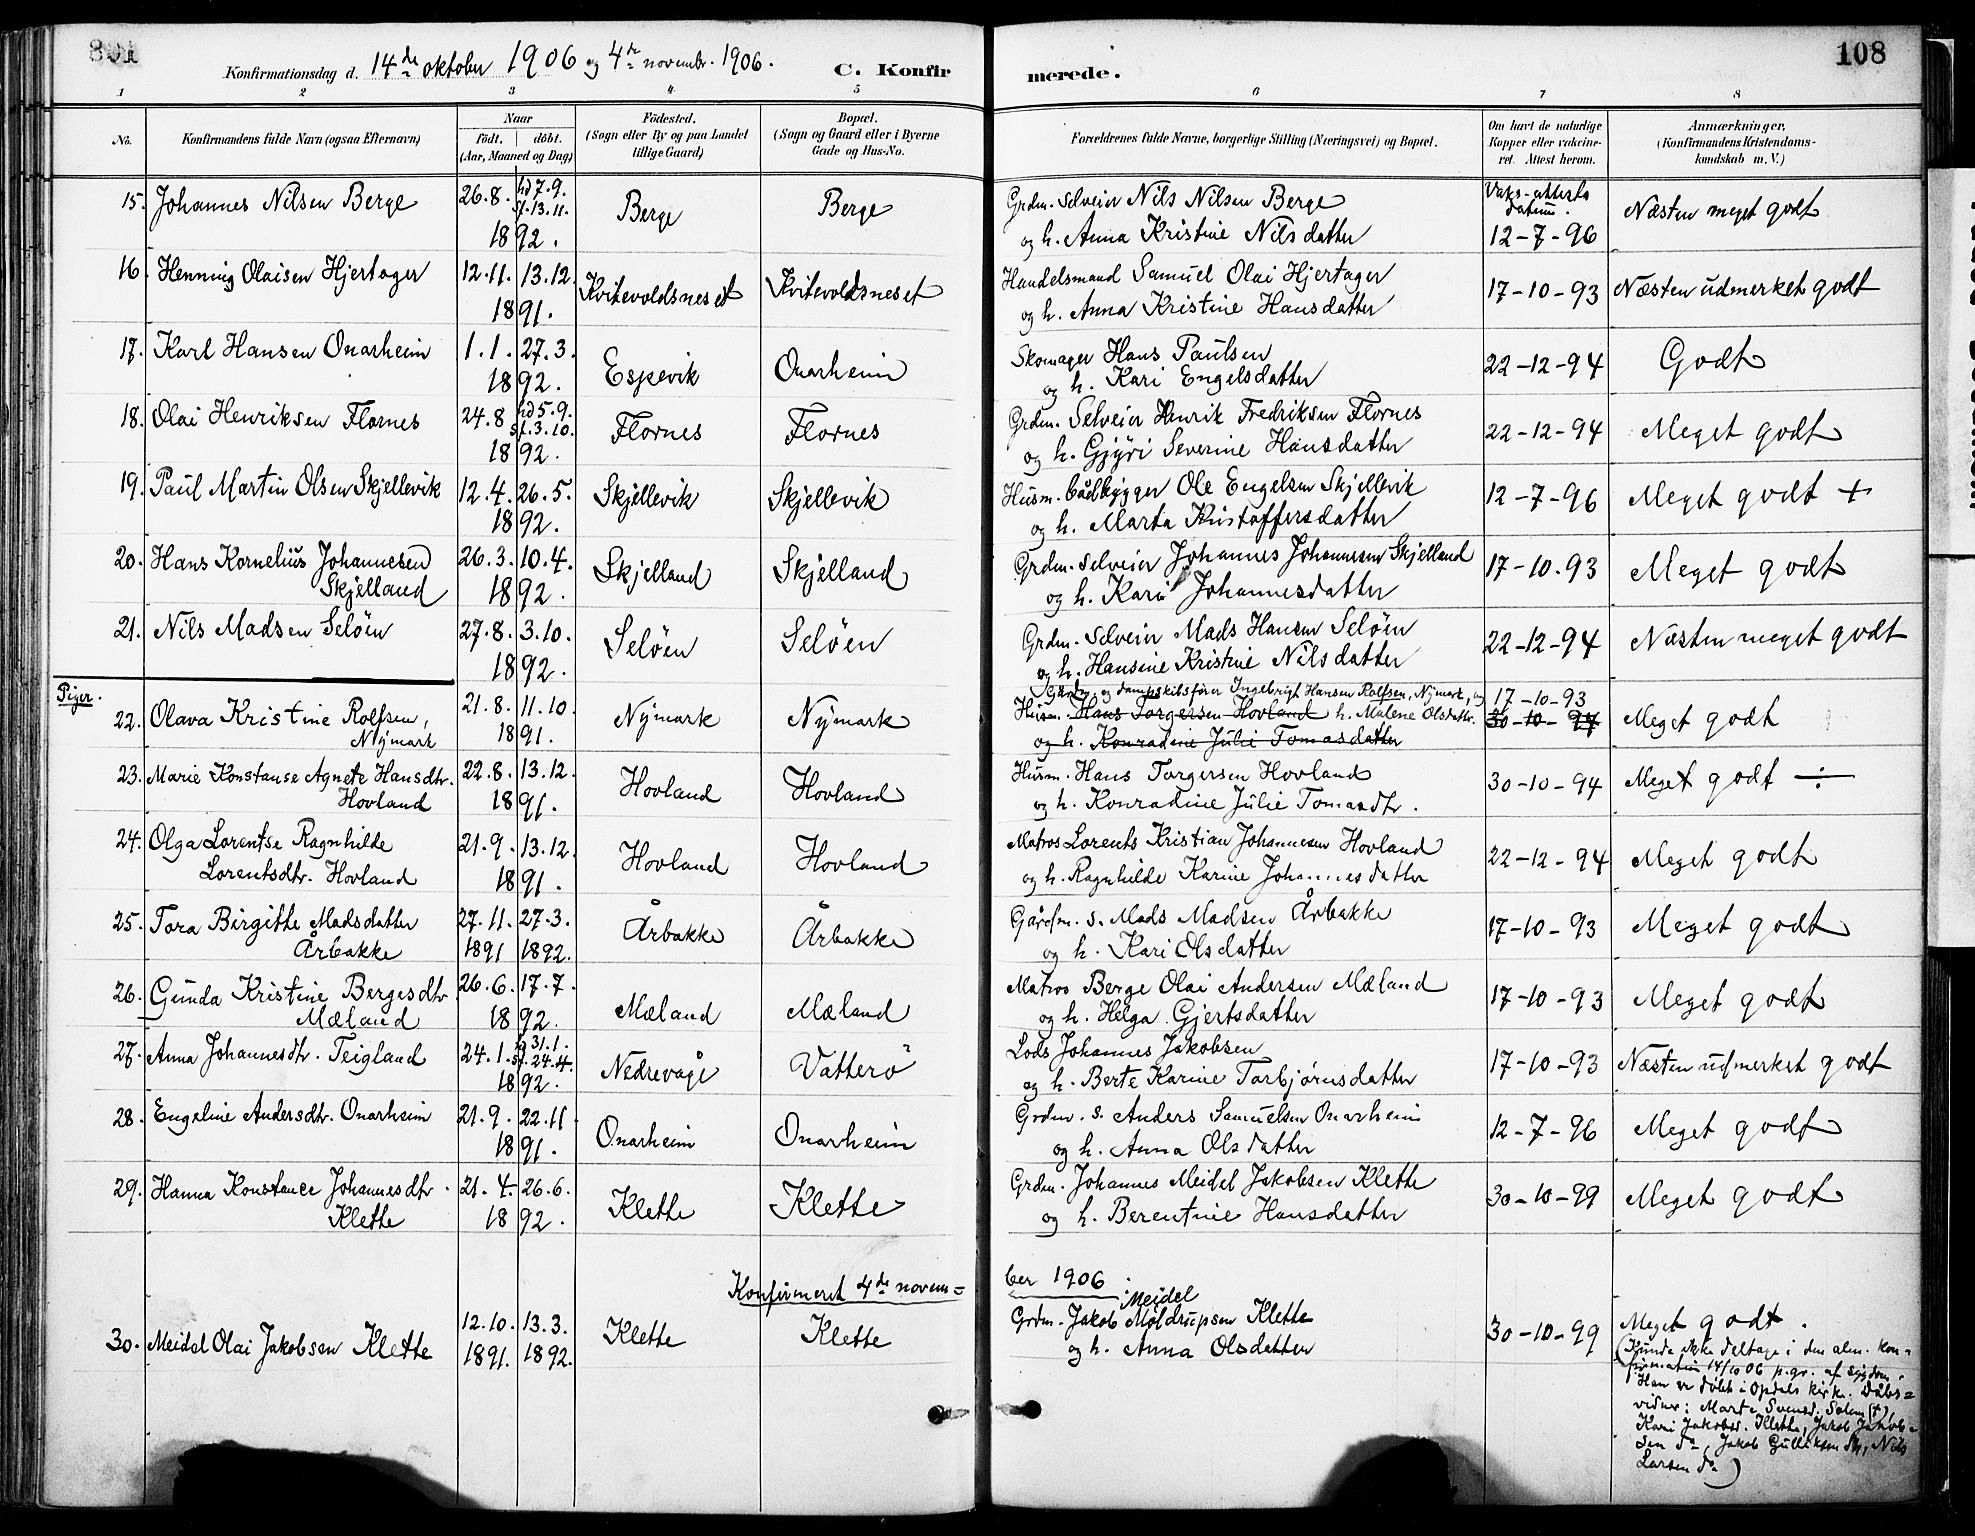 801
108
Konfirmationsdag d. 14de oktober 1906 og 4de novembr. 1906.
C. Konfirmerede.
1 2 3 4 5 6 7 8
No.
Konfirmandens fulde Navn (ogsaa Efternavn)
Naar
født. døbt.
(Aar, Maaned og Dag)
Fødested.
(Sogn eller By og paa Landet
tillige Gaard)
Bopæl.
(Sogn og Gaard eller i Byerne
Gade og Hus-No.
Forældrenes fulde Navne, borgerlige Stilling (Næringsvei) og Bopæl.
Om havt de naturlige
Kopper eller vakcine-
ret. Attest herom.
Anmærkninger,
(Konfirmandens Kristendoms-
kundskab m. V.)
15. Johannes Nilsen Berge 26.8. hd 7.9. st. 13.11. 1892. Berge Berge
Grdm. selveier Nils Nilsen Berge
og h. Anna Kristine Nilsdatter
Vaks-attests datum. 12-7-96 Næsten meget godt
16. Henning Olaisen Hjertager 12.11. 13.12. 1891. Kvitevoldsneset Kvitevoldsneset
Handelsmand Samuel Olai Hjertager
og h. Anna Kristine Hansdatter
17-10-93 Næsten udmerket godt
17. Karl Hansen Onarheim 1.1. 27.3. 1892. Espevik Onarheim
Skomager Hans Paulsen
og h. Kari Engelsdatter
22-12-94 Godt
18. Olai Henriksen Flornes 24.8 hd 5.9. st. 3.10. 1892. Flornes Flornes
Grdm. Selveier Henrik Fredriksen Flornes
og h. Gjøri Severine Hansdatter
22-12-94 Meget godt
19. Paul Martin Olsen Skjellevik 12.4. 26.5. 1892. Skjellevik Skjellevik
Husm. bådbygger Ole Engelsen Skjellevik
og h. Marta Kristoffersdatter
12-7-96 Meget godt +
20. Hans Kornelius Johannesen
Skjelland 26.3. 10.4. 1892. Skjelland Skjelland
Grdm. selveier Johannes Johannesen Skjelland
og h. Kari Johannesdatter
17-10-93 Meget godt
21. Nils Madsen Seløen 27.8. 3.10. 1892. Seløen Seløen
Grdm. Selveier Mads Hansen Seløen
og h. Hansine Kristine Nilsdatter
22-12-94 Næsten meget godt
Piger.
22. Olava Kristine Rolfsen,
Nymark 21.8. 11.10. 1891. Nymark Nymark
Gårdm. og dampskibsfører Ingebrigt Hansen Rolfsen, Nymark, og
Husm. Hans Torgersen Hovland h. Malene Olsdattr.
og h. Konradine Julie Tomasdatter
17-10-93
30-10-94 Meget godt
23. Marie Konstanse Agnete Hansdtr.
Hovland 22.8. 13.12. 1891. Hovland Hovland
Husm. Hans Torgersen Hovland
og h. Konradine Julie Tomasdtr.
30-10-94 Meget godt ÷
24. Olga Lorentse Ragnhilde
Lorentsdtr. Hovland 21.9. 13.12. 1891. Hovland Hovland
Matros Lorents Kristian Johannesen Hovland
og h. Ragnhilde Karine Johannesdatter
22-12-94 Meget godt
25. Tora Birgitte Madsdatter
Årbakke 27.11. 27.3. 1891 1892. Årbakke Årbakke
Gårdm. s. Mads Madsen Årbakke
og h. Kari Olsdatter
17-10-93 Meget godt
26. Gunda Kristine Bergesdtr.
Mæland 26.6. 17.7. 1892. Mæland Mæland
Matros Berge Olai Andersen Mæland
og h. Helga Gjertsdatter
17-10-93 Meget godt
27. Anna Johannesdtr. Teigland 24.1. hd 31.1. st. 24.4. 1892. Nedrevåge Vatterø
Lods Johannes Jakobsen
og h. Berte Karine Torbjørnsdatter
17-10-93 Næsten udmerket godt
28. Engeline Andersdtr. Onarheim 21.9. 22.11 1891. Onarheim Onarheim
Grdm. s. Anders Samuelsen Onarheim
og h. Anna Olsdatter
12-7-96 Meget godt
29. Hanna Konstance Johannesdtr.
Klette 21.4. 26.6. 1892. Klette Klette
Grdm. Johannes Meidel Jakobsen Klette
og h. Berentine Hansdatter
30-10-99 Meget godt
Konfirmeret 4de november 1906
30. Meidel Olai Jakobsen Klette 12.10. 13.3. 1891. 1892. Klette Klette
Meidel
Grdm. Jakob Møldrupsen Klette
og h. Anna Olsdatter
30-10-99 Meget godt.
(Kunde ikke deltage i den alm. kon-
firmation 14/10 06 p.gr. af sygdom.
Han er døbt i Opdals kirke. Dåbs-
vidner: Marta Svensd. Solem (?),
Kari Jakobsd. Klette, Jakob Jakob-
sen do, Jakob Gulliksen do, Nils
Larsen do)